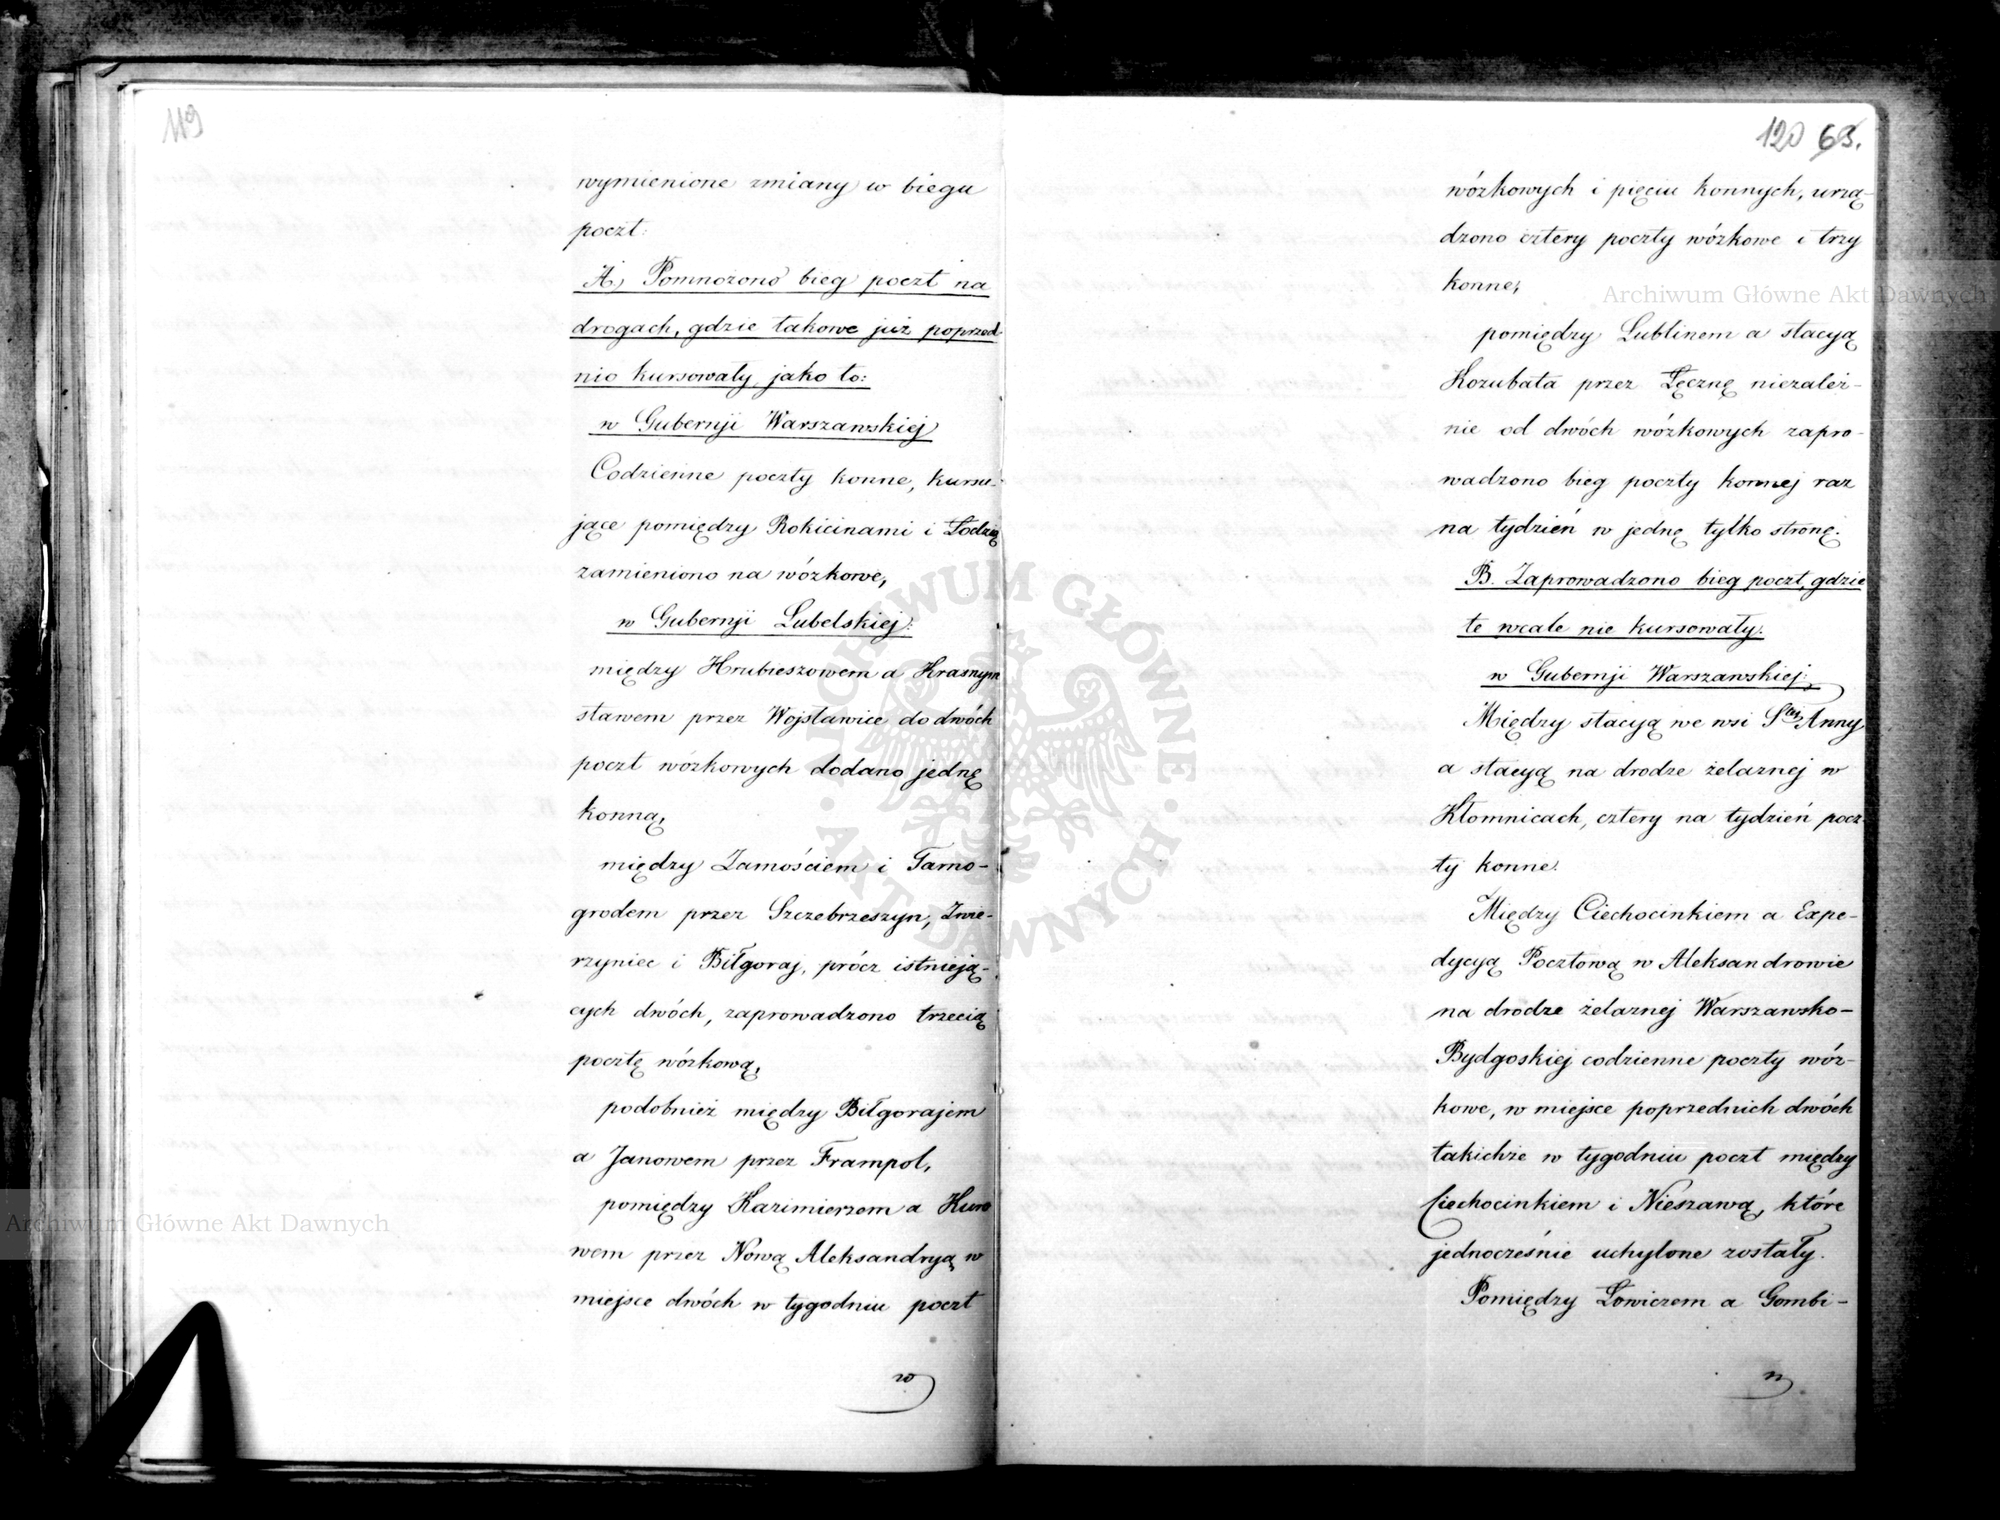 119
wymienione zmiany w biegu
poczt:
A, Pomnożono bieg poczt na
drogach, gdzie takowe już poprzed-
nio kursowały, jako to:
w Gubernji Warszawskiej
Codzienne poczty konne, kursu-
jące pomiędzy Rokicinami i Łodzią
zamieniono na wózkowe,
w Gubernji Lubelskiej:
między Hrubieszowem a Krasnym
stawem przez Wojsławice do dwóch
poczt wózkowych dodano jednę
konną,
między Zamościem i Tarno-
grodem przez Szczebrzeszyn, Zwie-
rzyniec i Biłgoraj, prócz istnieją-
cych dwóch, zaprowadzono trzecią
pocztę wózkową,
podobnież między Biłgorajem
a Janowem przez Frampol,
pomiędzy Kazimierzem a Kuro
wem przez Nową Aleksandryą w
miejsce dwóch w tygodniu poczt
wó
120 63.
wózkowych i pięciu konnych, urzą-
dzono cztery poczty wózkowe i trzy
konne,
pomiędzy Lublinem a stacyą
Kozubata przez Łęcznę niezależ-
nie od dwóch wózkowych zapro-
wadzono bieg poczty konnej raz
na tydzień w jednę tylko stronę.
B. Zaprowadzono bieg poczt, gdzie
te wcale nie kursowały:
w Gubernji Warszawskiej:
Między stacyą we wsi Stej Anny
a stacyą na drodze żelaznej w
Kłomnicach, cztery na tydzień pocz-
ty konne.
Między Ciechocinkiem a Expe-
dycyą Pocztową w Aleksandrowie
na drodze żelaznej Warszawsko-
Bydgoskiej codzienne poczty wóz-
kowe, w miejsce poprzednich dwóch
takichże w tygodniu poczt między
Ciechocinkiem i Nieszawą, które
jednocześnie uchylone zostały.
Pomiędzy Łowiczem a Gombi-
n
Archiwum Główne Akt Dawnych
Archiwum Główne Akt Dawnych
ARCHIWUM GŁÓWNE AKT DAWNYCH